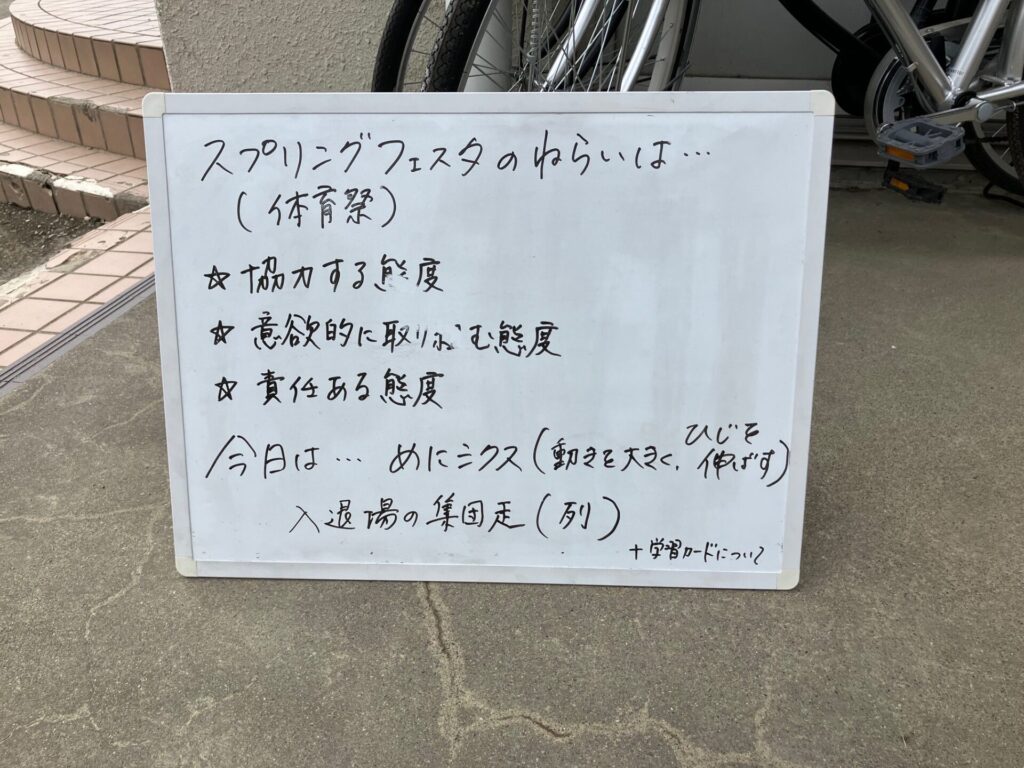 スプリングフェスタのねらいは…
(体育祭)
☆協力する態度
☆意欲的に取り組む態度
☆責任ある態度
今日は… めにミクス(動きを大きく,ひじを伸ばす)
入退場の集団走(列)
+学習カードについて